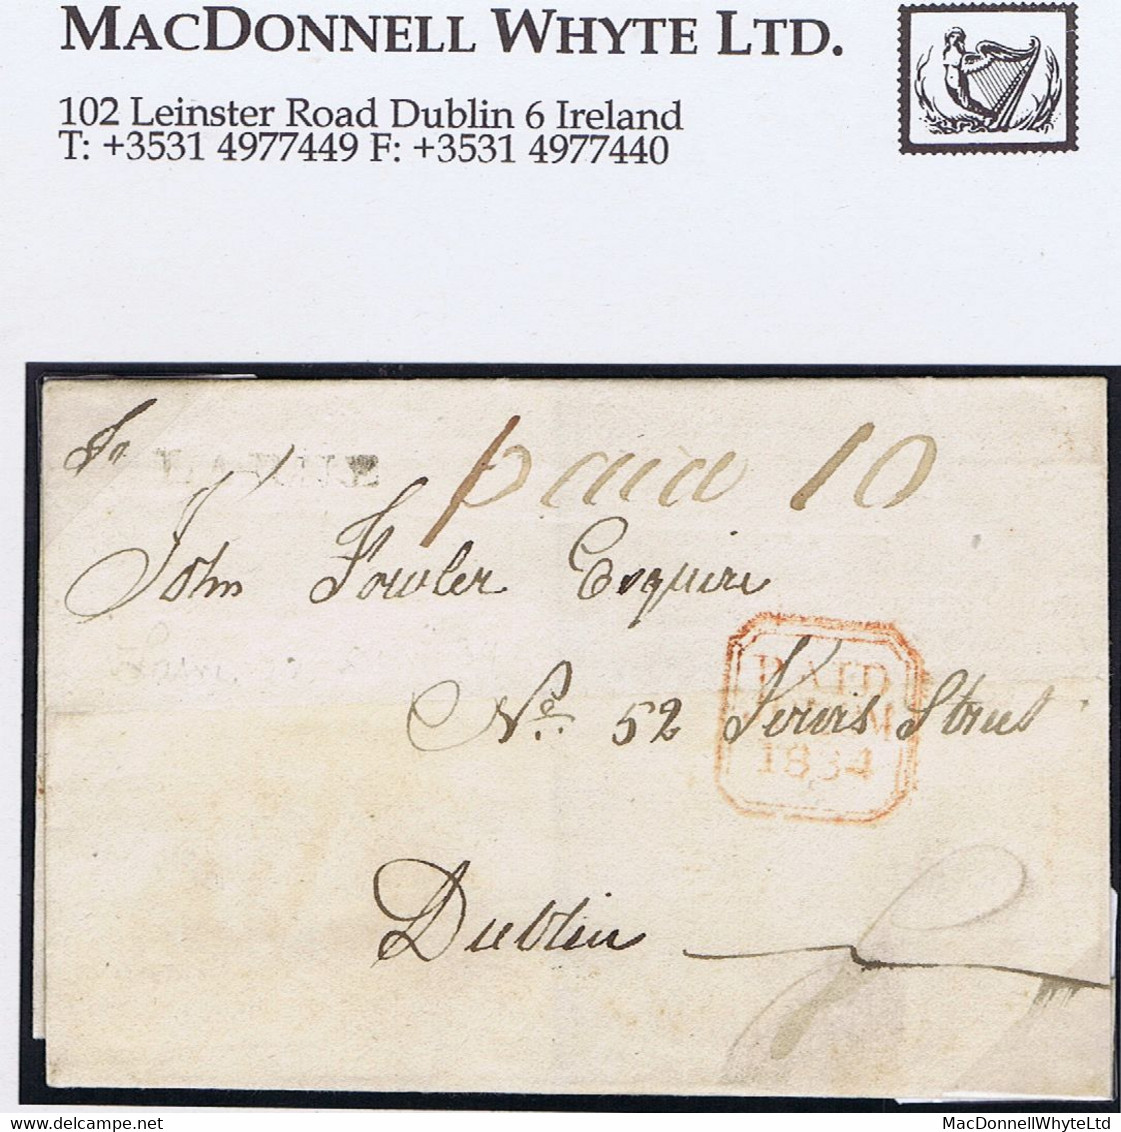 MACDONNELL WHYTE LTD.
102 Leinster Road Dublin 6 Ireland
T: +3531 4977449 F: +3531 4977440
To
paid 10
John Fowler Esquire
PAID
No. 52 Jervis Street
1834
Dublin
MacDonnellWhyteLtd